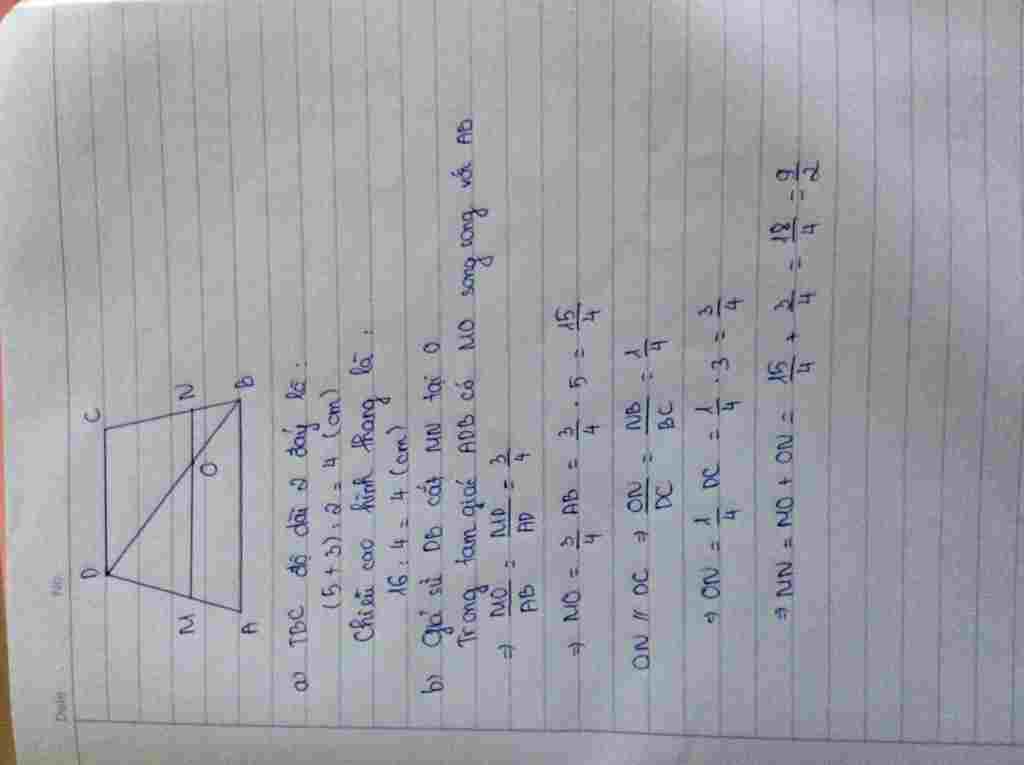 Date No.
D C
M O N
A B
a) TBC độ dài 2 đáy là :
(5 + 3) : 2 = 4 (cm)
Chiều cao hình thang là :
16 : 4 = 4 (cm)
b) Giả sử DB cắt MN tại O
Trong tam giác ADB có MO song song với AB
⇒ MO/AB = MD/AD = 3/4
⇒ MO = 3/4 AB = 3/4 . 5 = 15/4
ON // DC ⇒ ON/DC = NB/BC = 1/4
⇒ ON = 1/4 DC = 1/4 . 3 = 3/4
⇒ MN = MO + ON = 15/4 + 3/4 = 18/4 = 9/2